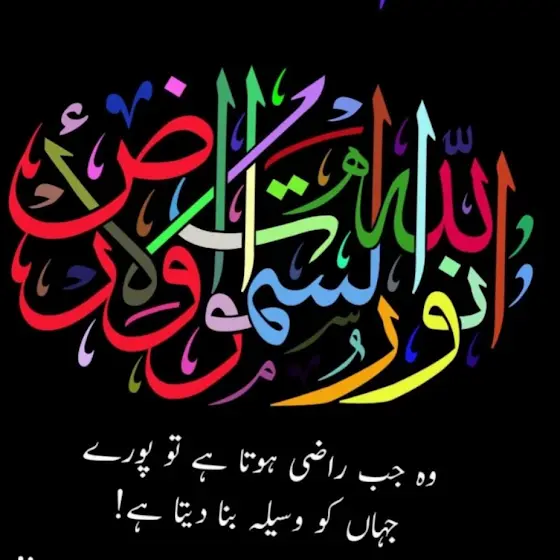 الله نور السموت والارض
وہ جب راضی ہوتا ہے تو پورے
جہاں کو وسیلہ بنا دیتا ہے!